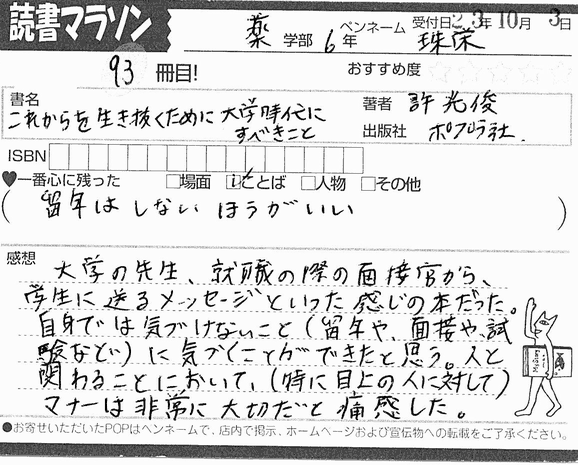 読書マラソン
薬学部 6年 ペンネーム 珠栄 受付日23年10月3日
93冊目! おすすめ度 ☆☆☆☆☆
書名 これからを生き抜くために大学時代に
すべきこと
著者 許光俊
出版社 ポプラ社.
ISBN
♥一番心に残った □場面 ☑ことば □人物 □その他
(留年はしないほうがいい)
感想
大学の先生、就職の際の面接官から、
学生に送るメッセージといった感じの本だった。
自身では気づけないこと(留年や、面接や、試
験など)に気づくことができたと思う。人と
関わることにおいて、(特に目上の人に対して)
マナーは非常に大切だと痛感した。
●お寄せいただいたPOPはペンネームで、店内で掲示、ホームページおよび宣伝物への転載をご了承ください。